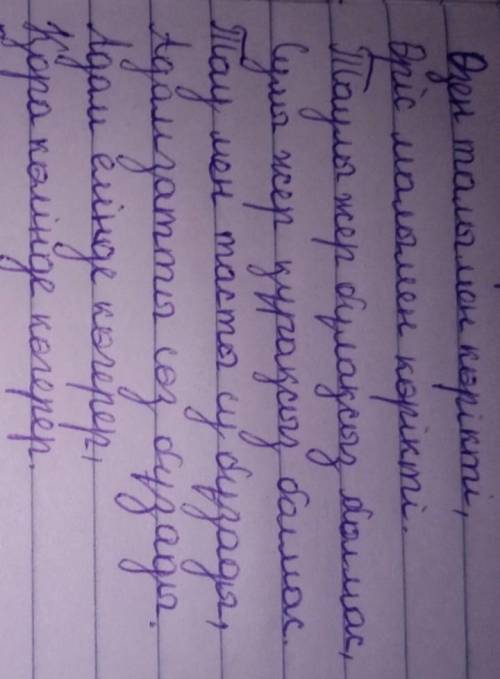 Өзен талымен көрікті,
Өріс малымен көрікті.
Таулы жер бұлақсыз болмас,
Сулы жер құрақсыз болмас.
Тау мен тасты су бұзады,
Адамзатты сөз бұзады.
Адам елінде көгерер,
Қоға көлінде көгерер.